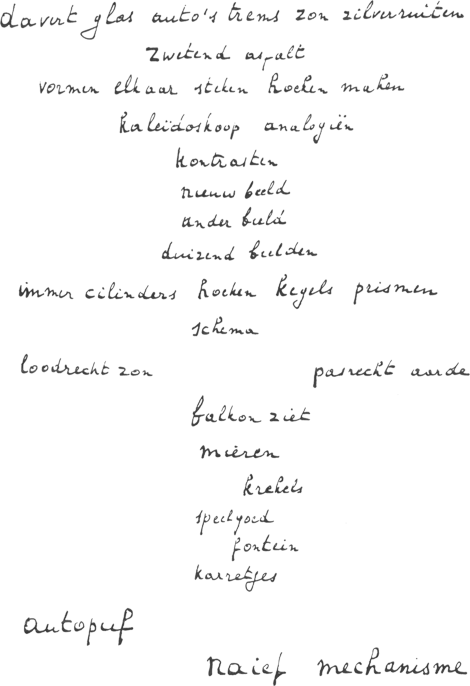 davert glas auto's trems zon zilverruiten
zwetend asfalt
vormen elkaar steken hoeken maken
kaleïdoskoop analogiën
kontrasten
nieuw beeld
ander beeld
duizend beelden
immer cilinders hoeken kegels prismen
schema
loodrecht zon pasrecht aarde
balkon ziet
mieren
krekels
speelgoed
fontein
karretjes
autopuf
naief mechanisme